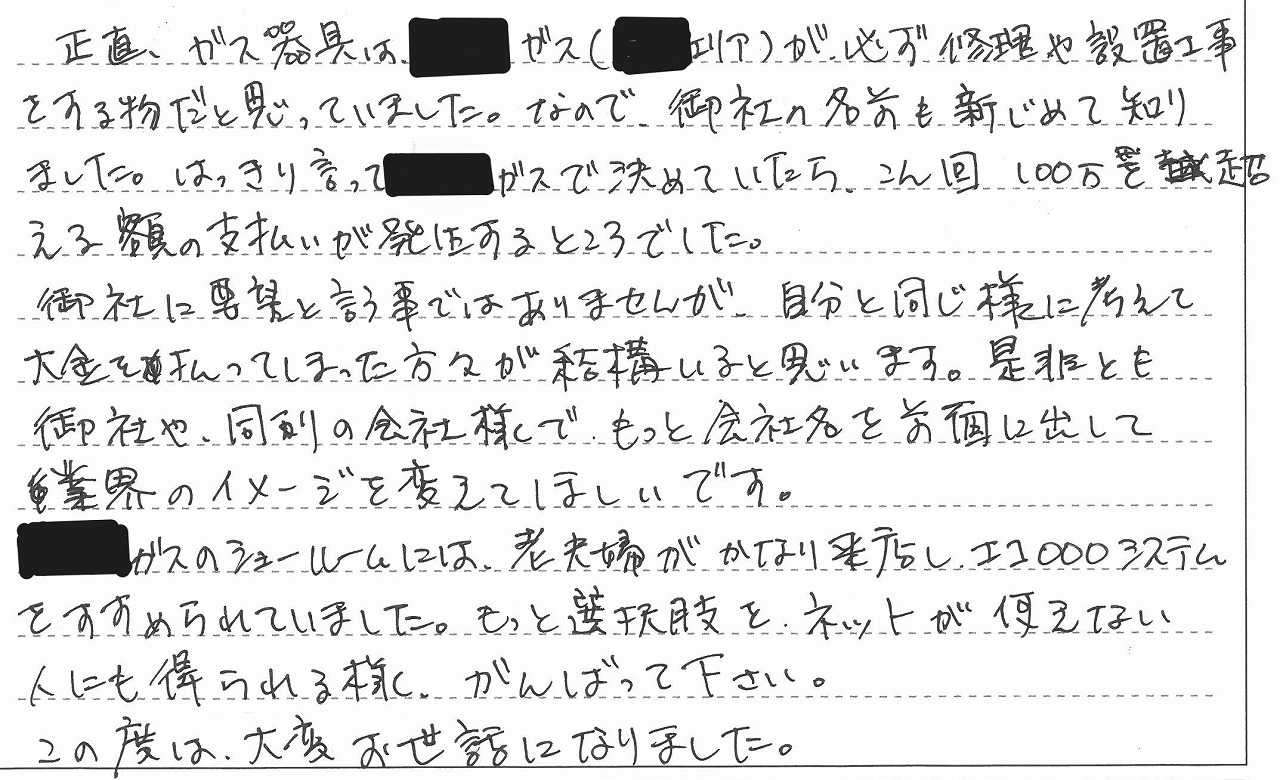 正直、ガス器具は、ガス(エリア)が、必ず修理や設置工事
をする物だと思っていました。なので、御社の名前も新じめて知り
ました。はっきり言ってガスで決めていたら、こん回 100万を超
える額の支払いが発生するところでした。
御社に要望と言う事ではありませんが、自分と同じ様に考えて
大金を払ってしまった方々が結構いると思います。是非とも
御社や、同列の会社様で、もっと会社名を前面に出して
業界のイメージを変えてほしいです。
ガスのショールームには、老夫婦がかなり来店し、エコ〇〇〇システム
をすすめられていました。もっと選択肢を、ネットが使えない
人にも得られる様に、がんばって下さい。
この度は、大変お世話になりました。